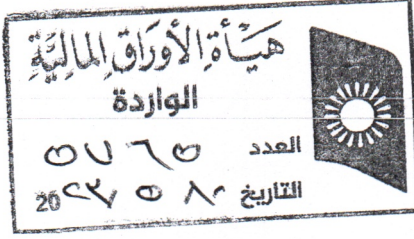 هيأة الأوراق المالية
الواردة
العدد ٥٧٦٥
التاريخ ٨ ٥ ٢٣ 20